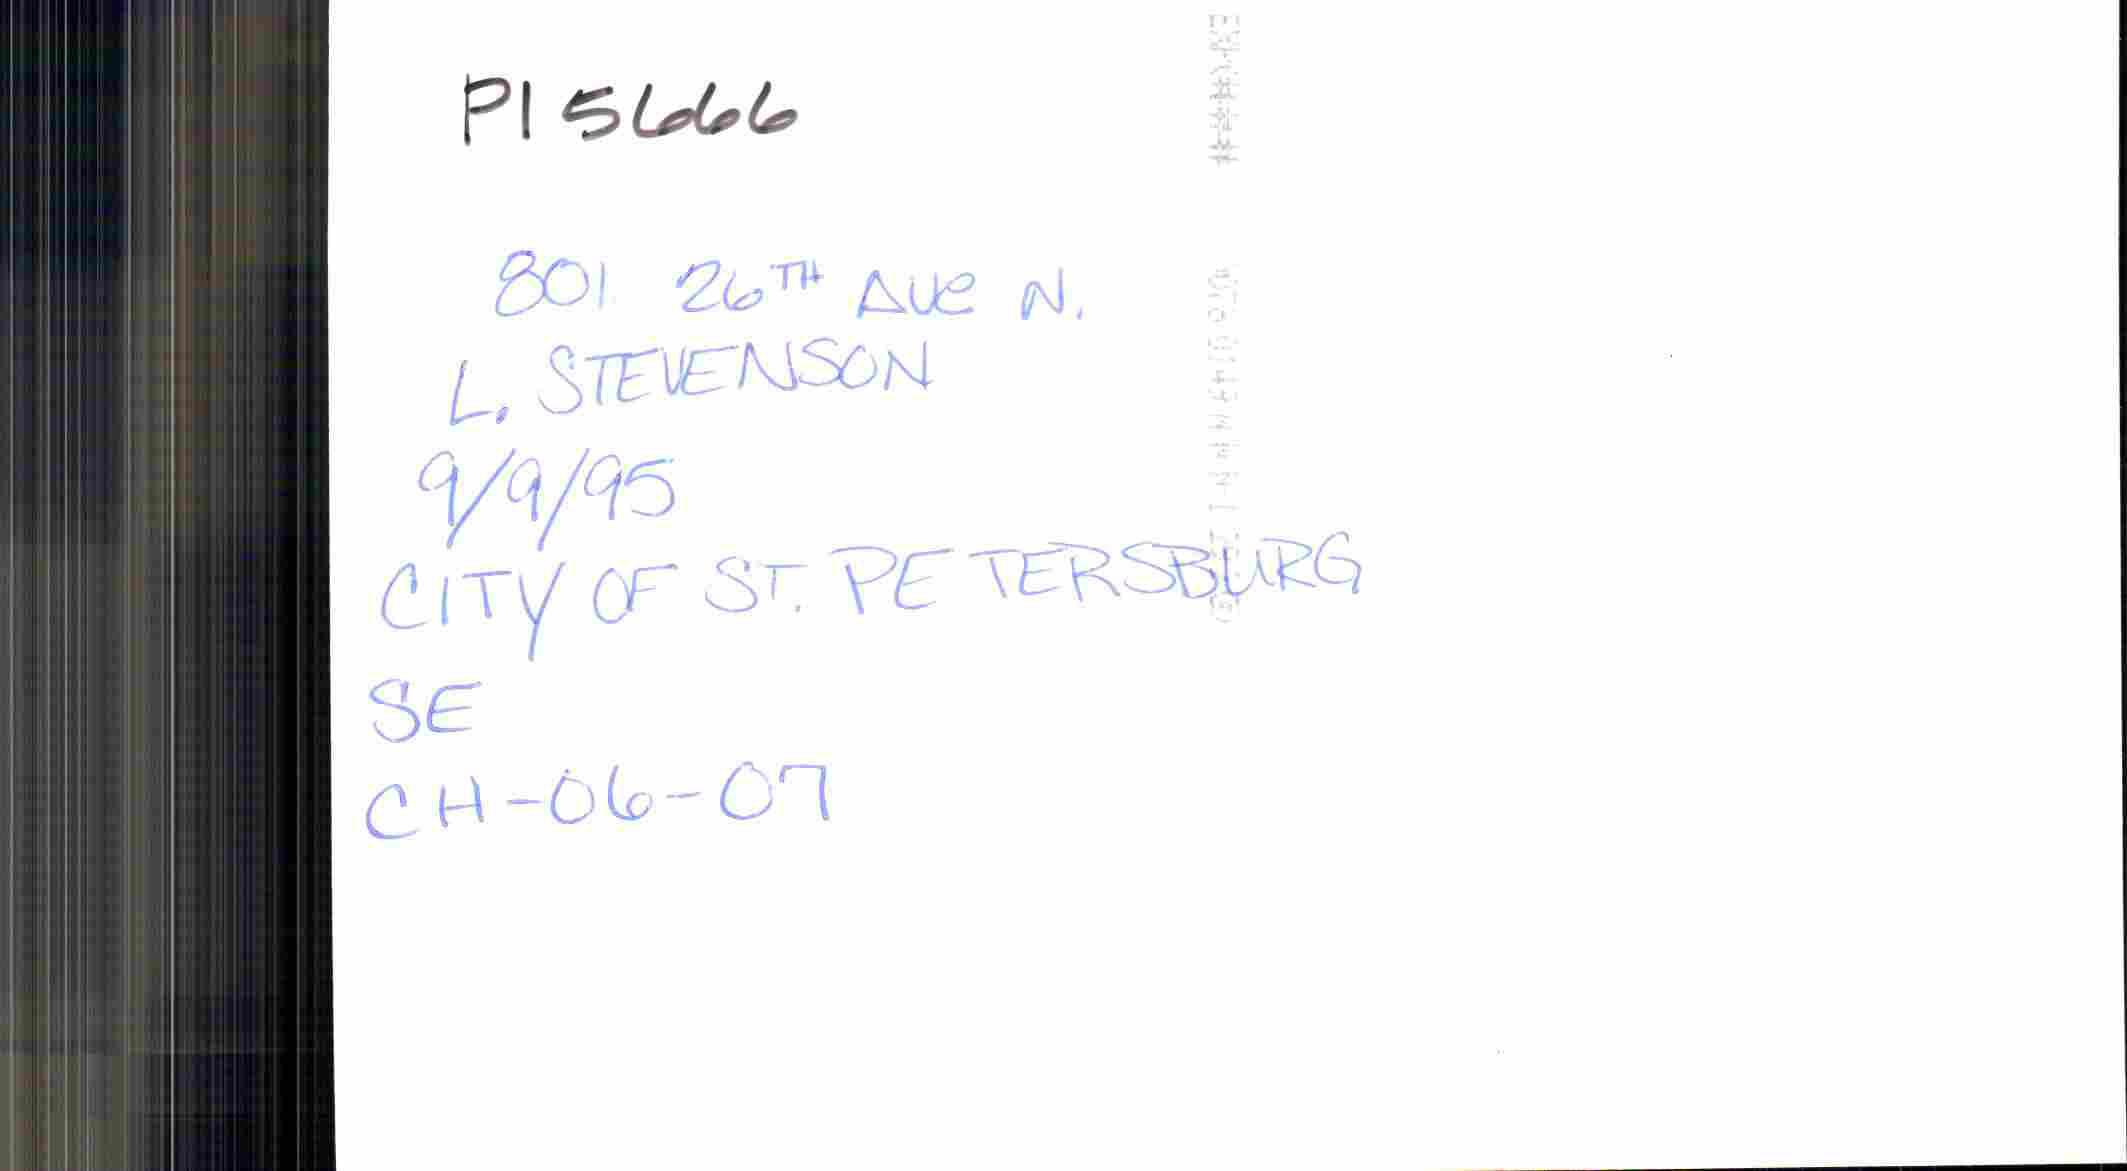 PI 5666
801 26TH AVE N.
L. STEVENSON
9/9/95
CITY OF ST. PETERSBURG
SE
CH-06-07